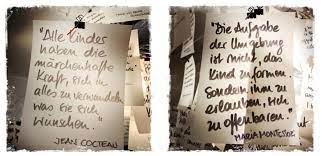 "Alle Kinder
haben die
märchenhafte
Kraft, sich in
alles zu verwandeln
was sie sich
wünschen."
JEAN COCTEAU
"Die Aufgabe
der Umgebung
ist nicht, das
Kind zu formen.
Sondern ihm zu
erlauben, sich
zu offenbaren."
MARIA MONTESSORI